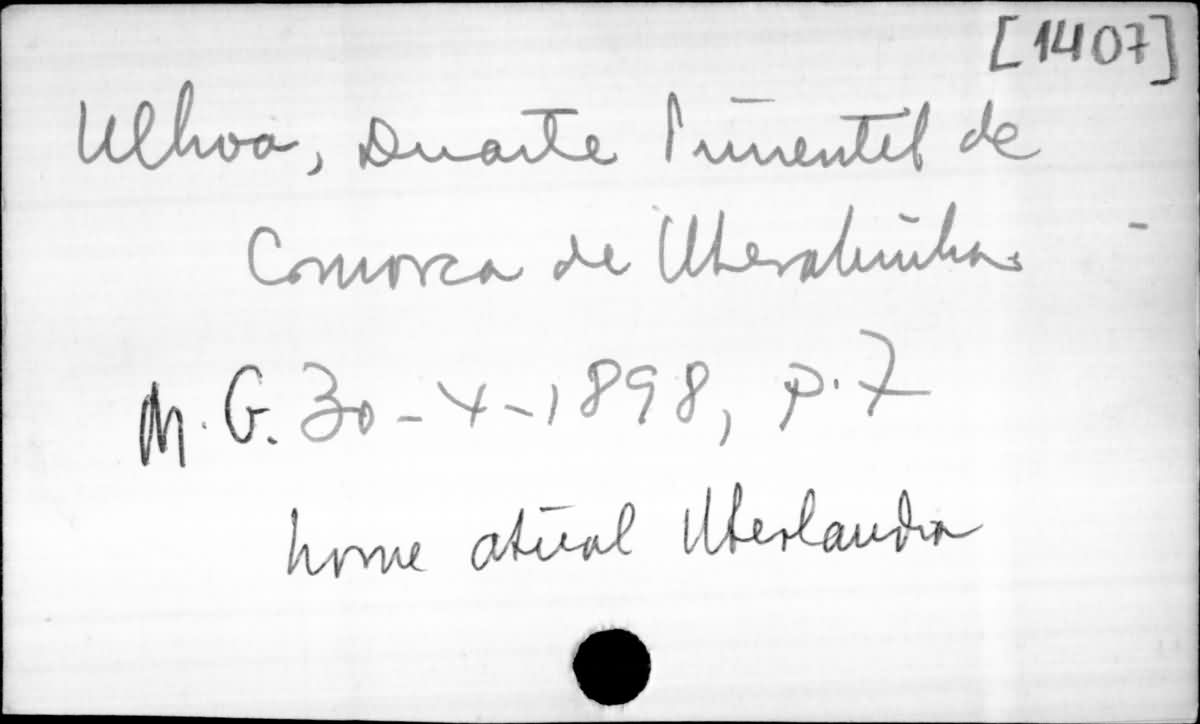 [1407]
Ulhoa, Duarte Pimentel de
Comarca de Uberabinha
M. G. 30-4-1898, p. 7
nome atual Uberlandia